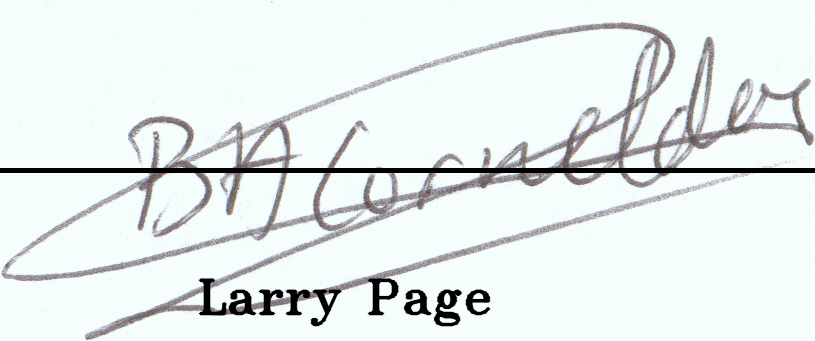 BA Cornelder
Larry Page